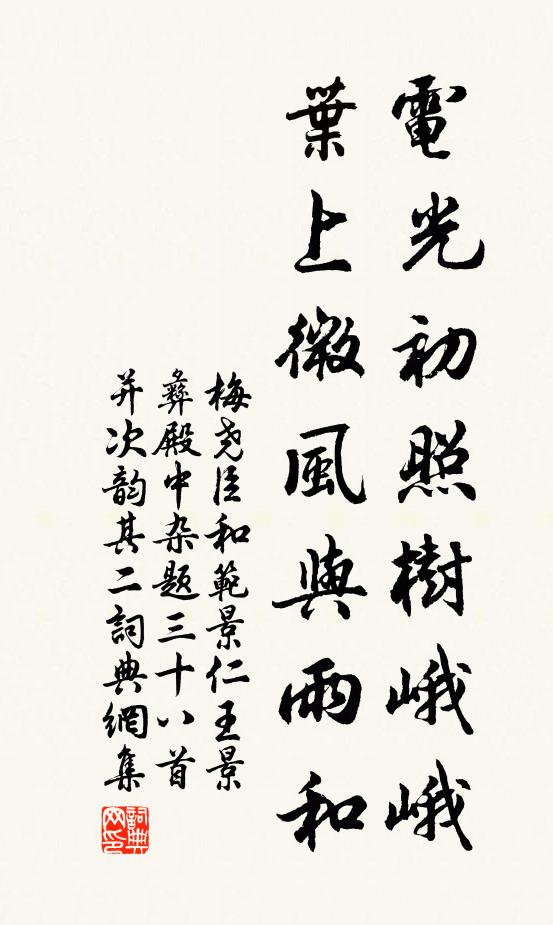 電光初照樹峨峨
葉上微風與雨和
梅尧臣和範景仁王景
彝殿中杂题三十八首
并次韵其二詞典網集
詞典
网印